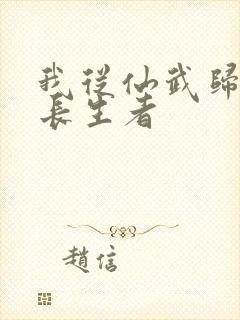 我從仙武歸
長生者
趙信